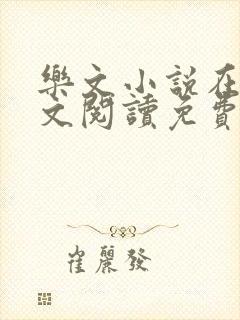 樂文小說在
文閱讀免費
崔麗發